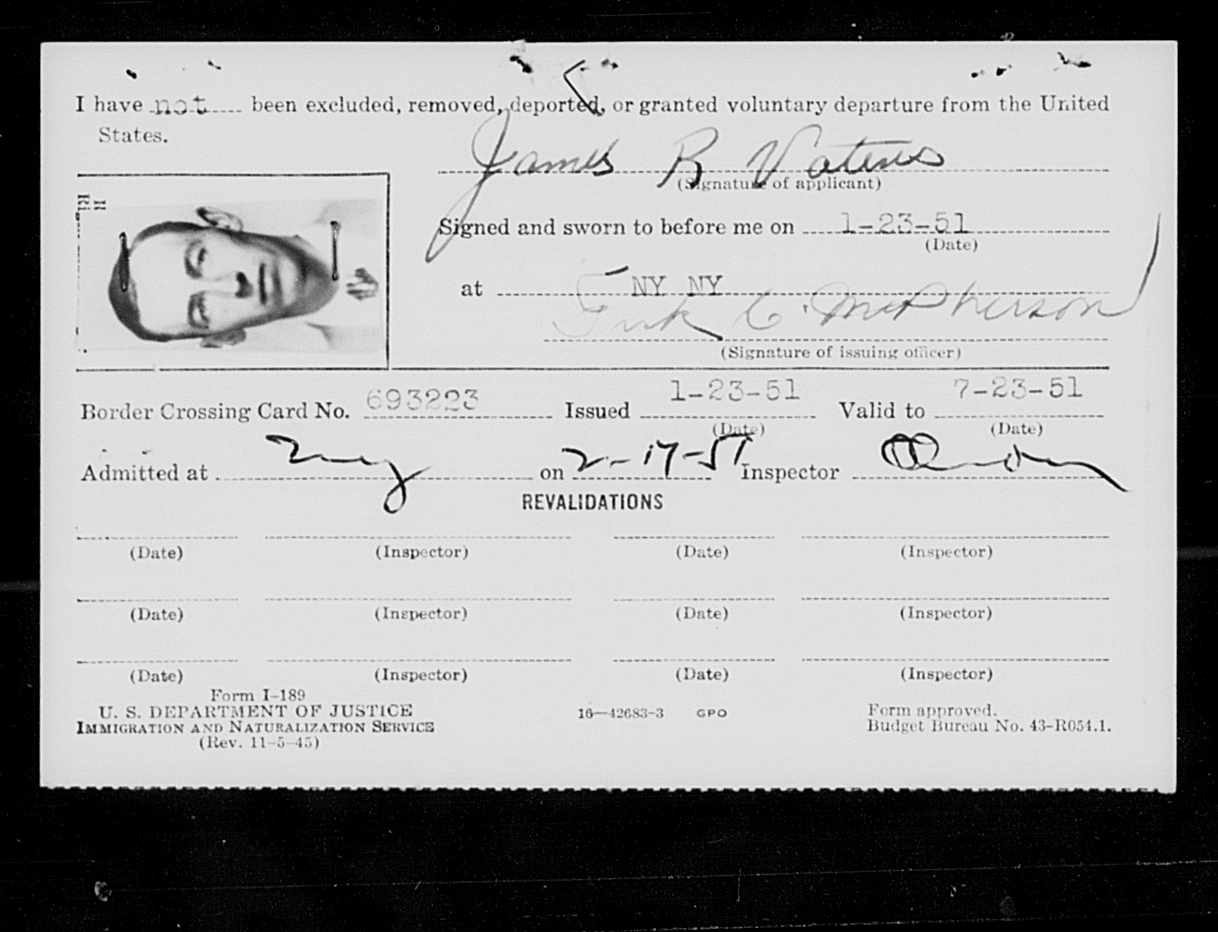 I have not been excluded, removed, deported, or granted voluntary departure from the United
States.
James R
(Signature of applicant)
Signed and sworn to before me on 1-23-51
(Date)
at NY NY
C. McPherson
(Signature of issuing officer)
Border Crossing Card No. 693223 Issued 1-23-51 Valid to 7-23-51
(Date) (Date)
Admitted at on 2-17-51 Inspector
REVALIDATIONS
(Date) (Inspector) (Date) (Inspector)
(Date) (Inspector) (Date) (Inspector)
(Date) (Inspector) (Date) (Inspector)
Form I-189
U. S. DEPARTMENT OF JUSTICE 16—42683-3 GPO Form approved.
IMMIGRATION AND NATURALIZATION SERVICE Budget Bureau No. 43-R054.1.
(Rev. 11-5-45)